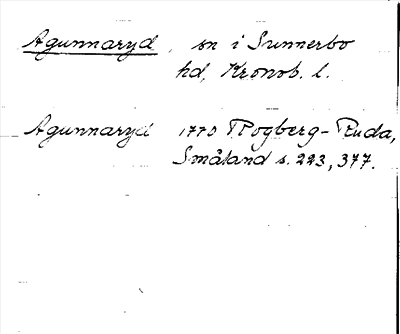 Agunnaryd sn i Sunnerbo
hd, Kronob. l.
Agunnaryd 1770 Rogberg-Ruda,
Småland s. 223, 377.